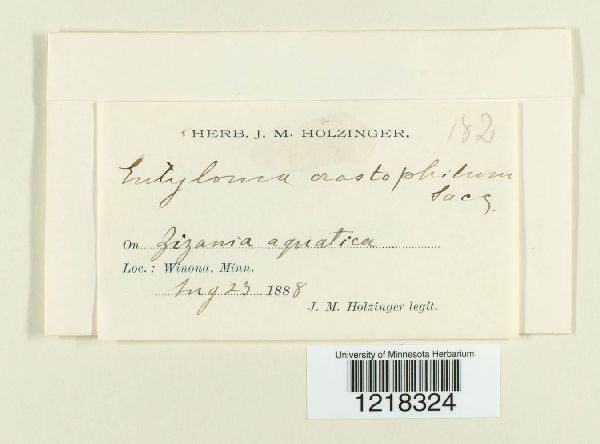 HERB. J. M. HOLZINGER.
182
Entyloma crastophilum
Sacc.
On Zizania aquatica
Loc.: Winona, Minn.
Aug 23 1888
J. M. Holzinger legit.
University of Minnesota Herbarium
1218324